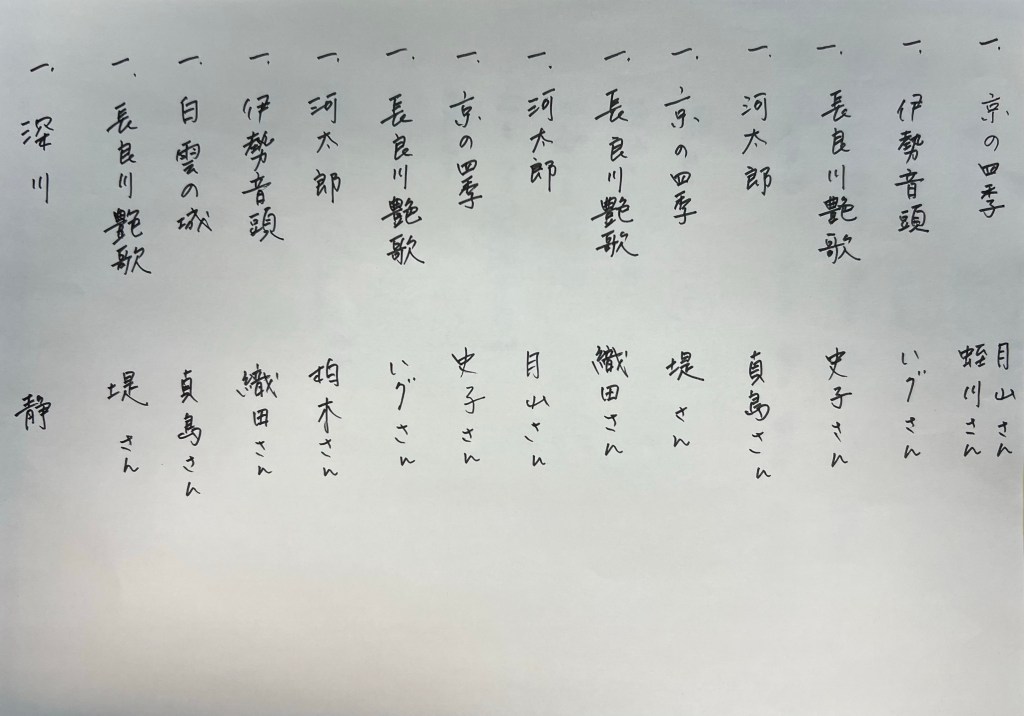 一、京の四季 月山さん
蛭川さん
一、伊勢音頭 いグさん
一、長良川艶歌 史子さん
一、河太郎 真島さん
一、京の四季 堤さん
一、長良川艶歌 織田さん
一、河太郎 月山さん
一、京の四季 史子さん
一、長良川艶歌 いグさん
一、河太郎 柏木さん
一、伊勢音頭 織田さん
一、白雲の城 真島さん
一、長良川艶歌 堤さん
一、深川 静